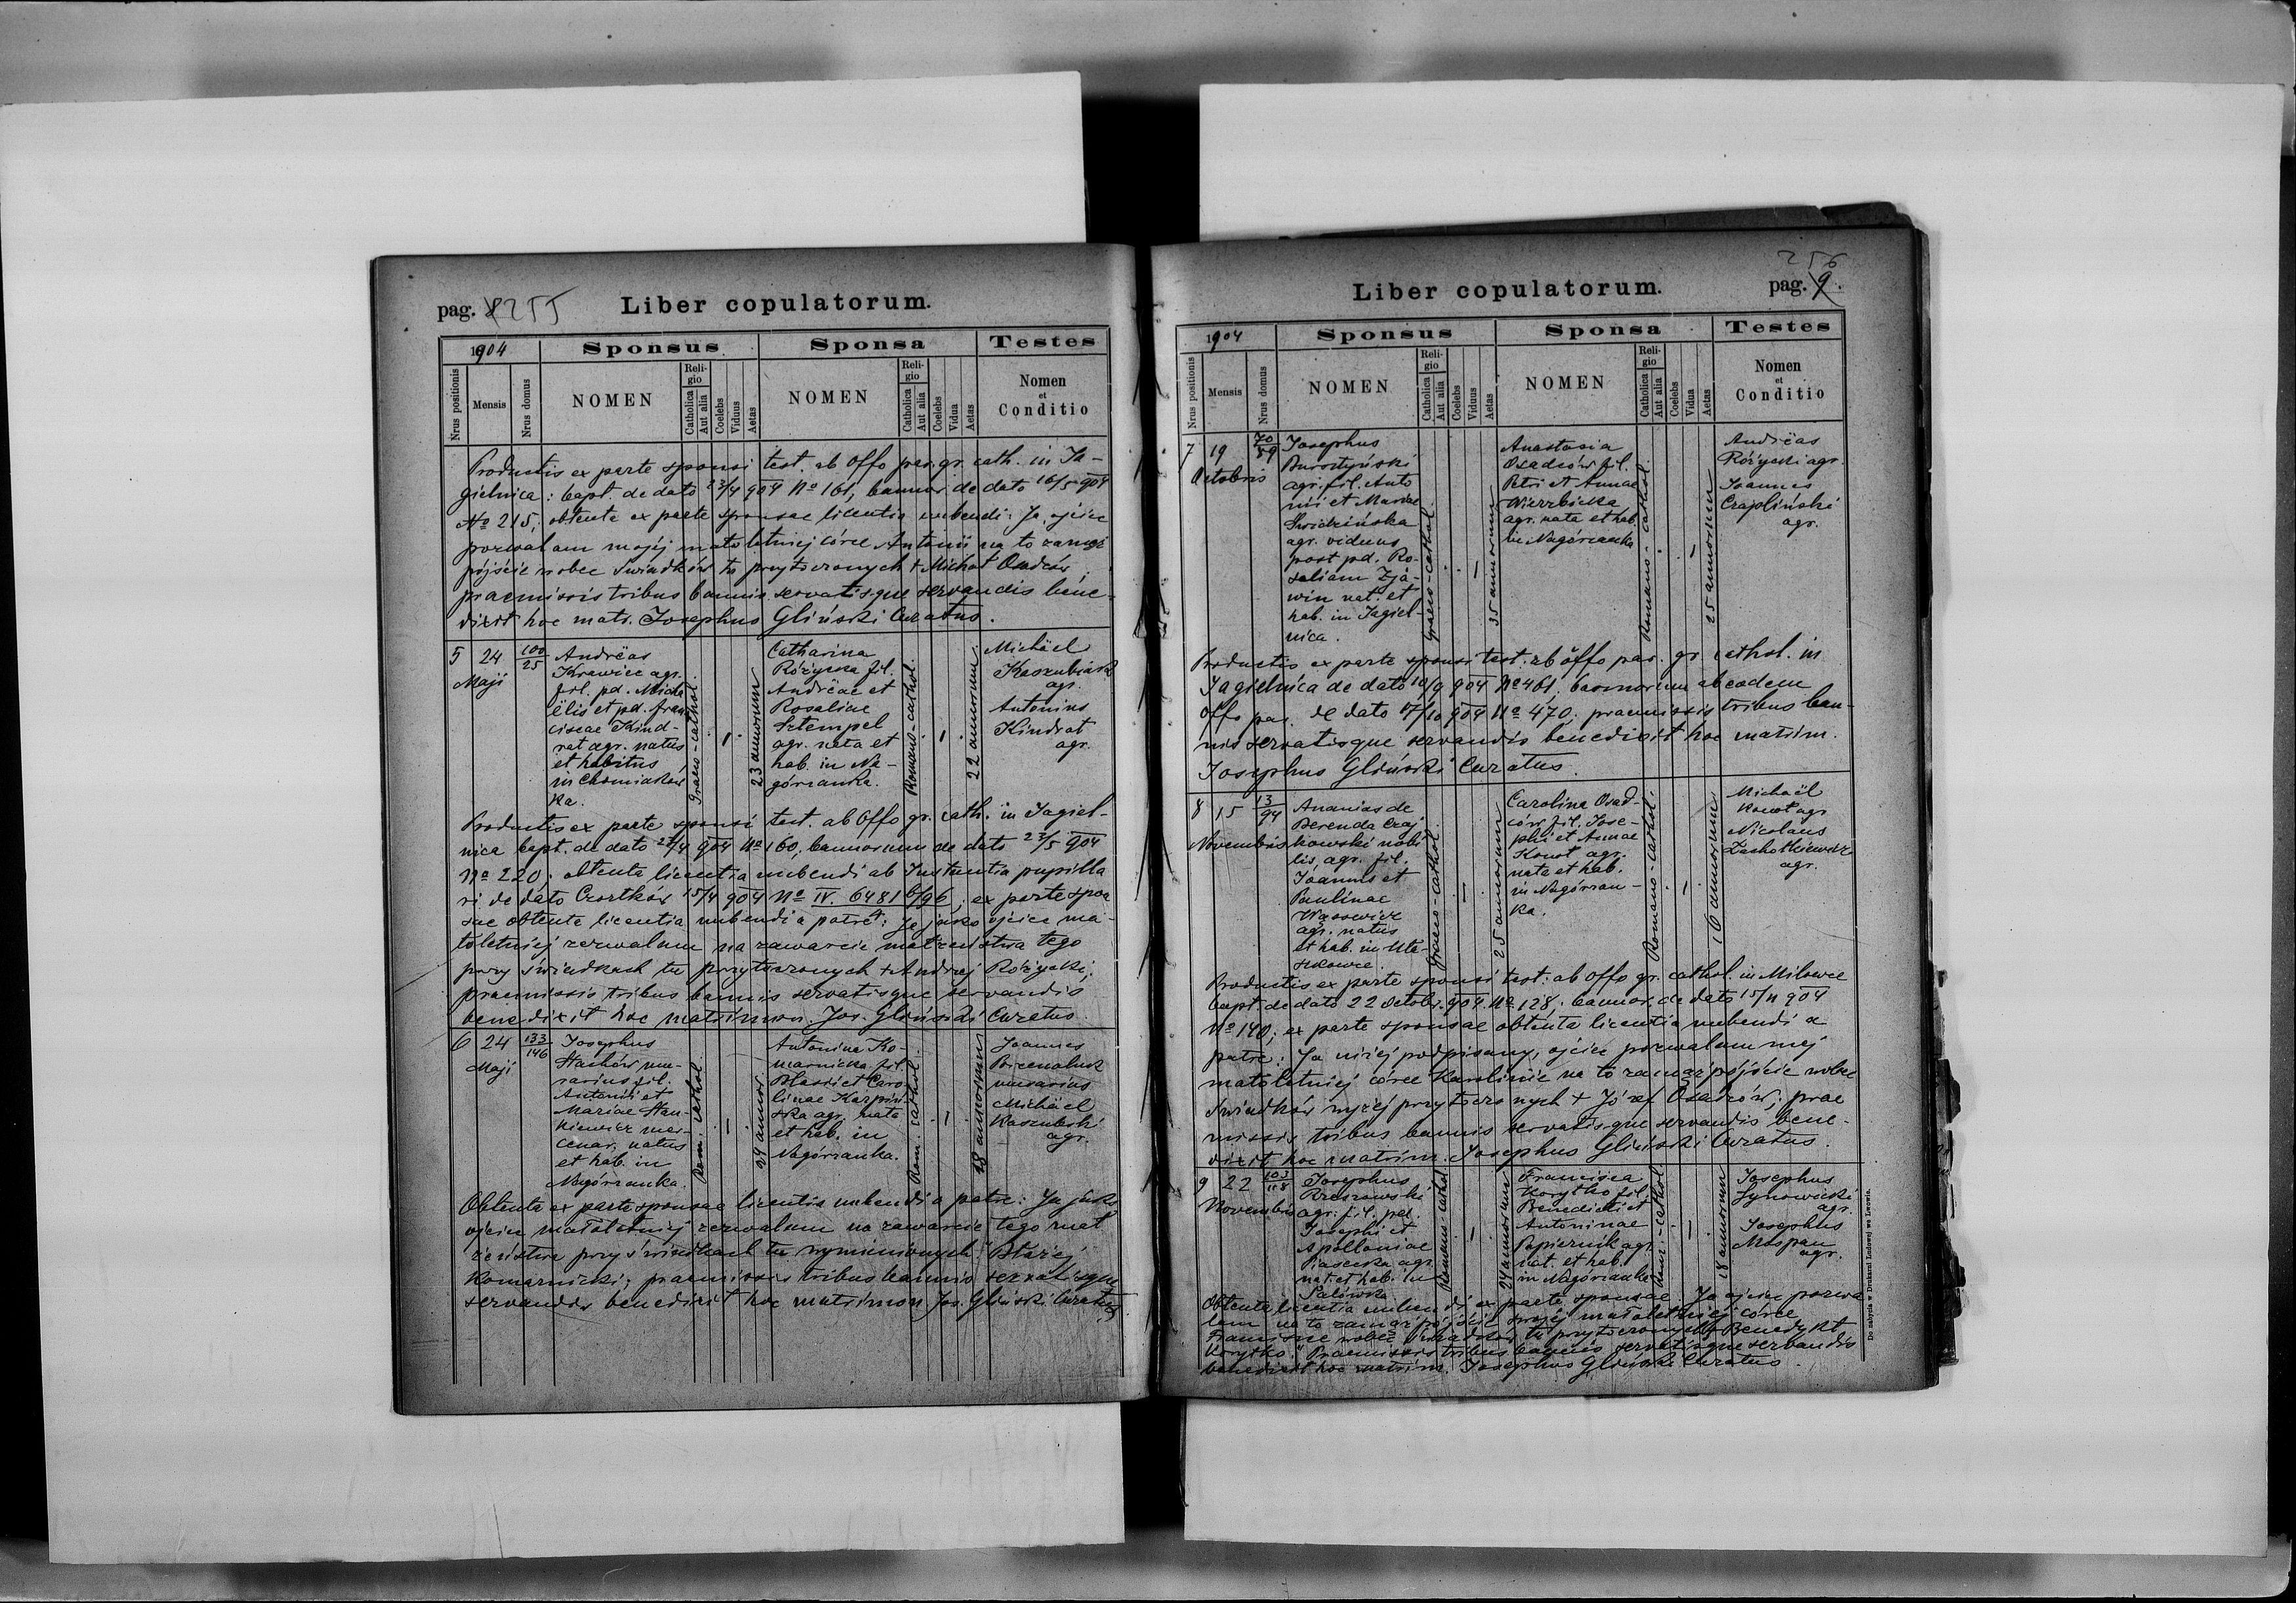 pag. 8 255
Liber copulatorum.
1904
Sponsus
Sponsa
Testes
Nrus positionis
Mensis
Nrus domus
NOMEN
Religio
Catholica
Aut alia
Coelebs
Viduus
Aetas
NOMEN
Religio
Catholica
Aut alia
Coelebs
Vidua
Aetas
Nomen
et
Conditio
Productis ex parte sponsi test. ab Offo par. gr. cath. in Ja-
gielnica: bapt. de dato 23/4 904 No 161, bannor. de dato 16/5 904
No 215; obtenta ex parte sponsae licentia nubendi: Ja ojciec
pozwalam mojéj małoletniej córce Antonii na to zamąż
pójście wobec świadków tu przytoczonych + Michał Osadców;
praemissis tribus bannis servatisque servandis bene-
dixit hoc matr. Josephus Gliński Curatus.
5
24
Maji
100
25
Andrëas
Krawiec agr.
fil. pd. Micha
ëlis et pd. Fran
ciscae Kind-
rat agr. natus
et habitus
in Chomiakow
ka.
Graeco-cathol.
23 annorum
Catharina
Różycka fil.
Andrëae et
Rosaliae
Sztempel
agr. nata et
hab. in Na-
górzanka.
Romano-cathol.
22 annorum
Michäel
agr.
Antonius
Kindrat
agr.
Productis ex parte sponsi test. ab Offo gr. cath. in Jagiel-
nica bapt. de dato 904 No 160, bannorum de dato 23/5 904
No 220; obtenta licentia nubendi ab Instantia pupilla
ri de dato Czortków 15/4 904 No IV. 6481 6/96; ex parte spon
sae obtenta licentia nubendi a patre: Ja jako ojciec ma-
łoletniej zezwalam na zawarcie małżeństwa tego
przy świadkach tu przytoczonych + Andrzej Różycki;
praemissis tribus bannis servatisque servandis
benedixit hoc matrimon. Jos. Gliński Curatus.
6
24
Maji
133
146
Josephus
Stachów mu-
rarius fil.
Antonii et
Mariae Stan-
kiewicz mer-
cenar. natus
et hab. in
Nagórzanka.
Rom. cathol.
24 annor.
Antonina Ko-
marnicka fil.
Blasii et Caro
linae Karpiń
ska agr. nata
et hab. in
Nagórzanka.
Rom. cathol.
18 annorum
Joannes
murarius
Michäel
Kaszubski
agr.
Obtenta ex parte sponsae licentia nubendi a patre: Ja jako
ojciec małoletniej zezwalam na zawarcie tego mał
żeństwa przy świadkach tu wymienionych." Błażej
Komarnicki; praemissis tribus bannis servatisque
servandis benedixit hoc matrimon. Jos. Gliński Curatus
256
pag. 9.
Liber copulatorum.
1904
Sponsus
Sponsa
Testes
Nrus positionis
Mensis
Nrus domus
NOMEN
Religio
Catholica
Aut alia
Coelebs
Viduus
Aetas
NOMEN
Religio
Catholica
Aut alia
Coelebs
Vidua
Aetas
Nomen
et
Conditio
7
19
Octobris
70
59
Josephus
Bursztyński
agr. fil. Anto
nii et Mariae
Świdzińska
agr. viduus
post pd. Ro-
saliam Zja-
win nat. et
hab. in Jagiel-
nica.
Graeco-cathol.
35 annorum
Anastasia
Osadców fil.
Petri et Annae
Wierzbicka
agr. nata et hab.
in Nagórzanka
Romano-cathol.
25 annorum
Andrëas
Różycki agr.
Joannes
Czapliński
agr.
Productis ex parte sponsi test. ab offo par. gr. cathol. in
Jagielnica de dato 10/9 904 No 461, bannorum ab eodem
offo par. de dato 17/10 904 No 470; praemissis tribus ban-
nis servatisque servandis benedixit hoc matrim.
Josephus Gliński Curatus.
8
15
Novembris
13
94
Ananias de
Berenda Czaj
kowski nobi
lis agr. fil.
Joannis et
Paulinae
Wąsowicz
agr. natus
et hab. in Uła-
szkowce.
Graeco-cathol.
25 annorum
Carolina Osad-
ców fil. Jose-
phi et Annae
Konot agr.
nata et hab.
in Nagórzan-
ka.
Romano-cathol.
16 annorum
Michaël
Konot agr
Nicolaus
agr.
Productis ex parte sponsi test: ab offo gr. cathol. in Milowce
bapt. de dato 22 Octobr. 904 No 128; bannor. de dato 15/11 904
No 140; ex parte sponsae obtenta licentia nubendi a
patre: Ja niżej podpisany, ojciec pozwalam mej
małoletniej córce Karolinie na to zamąż pójście wobec
świadków wyżej przytoczonych + Józef Osadców; prae
missis tribus bannis servatisque servandis bene-
dixit hoc matrim. Josephus Gliński Curatus.
9
22
Novembris
103
118
Josephus
Brzozowski
agr. fil. pd.
Josephi et
Apolloniae
Piasecka agr.
nat. et hab. in
Salówka
Romano-cathol.
24 annorum
Francisca
Korytko fil.
Benedicti et
Antoninae
Papiernik agr.
nat. et hab.
in Nagórzanka
Rom.-cathol.
18 annorum
Josephus
agr.
Josephus
Mospan
agr.
Obtenta licentia nubendi ex parte sponsae: Ja ojciec pozwa
lam na to zamąż pójście swojéj małoletniej córce
wobec świadków tu przytoczonych + Benedykt
Korytko." Praemissis tribus bannis servatisque servandis
benedixit hoc matrim. Josephus Gliński Curatus.
Do nabycia w Drukarni Ludowej we Lwowie.